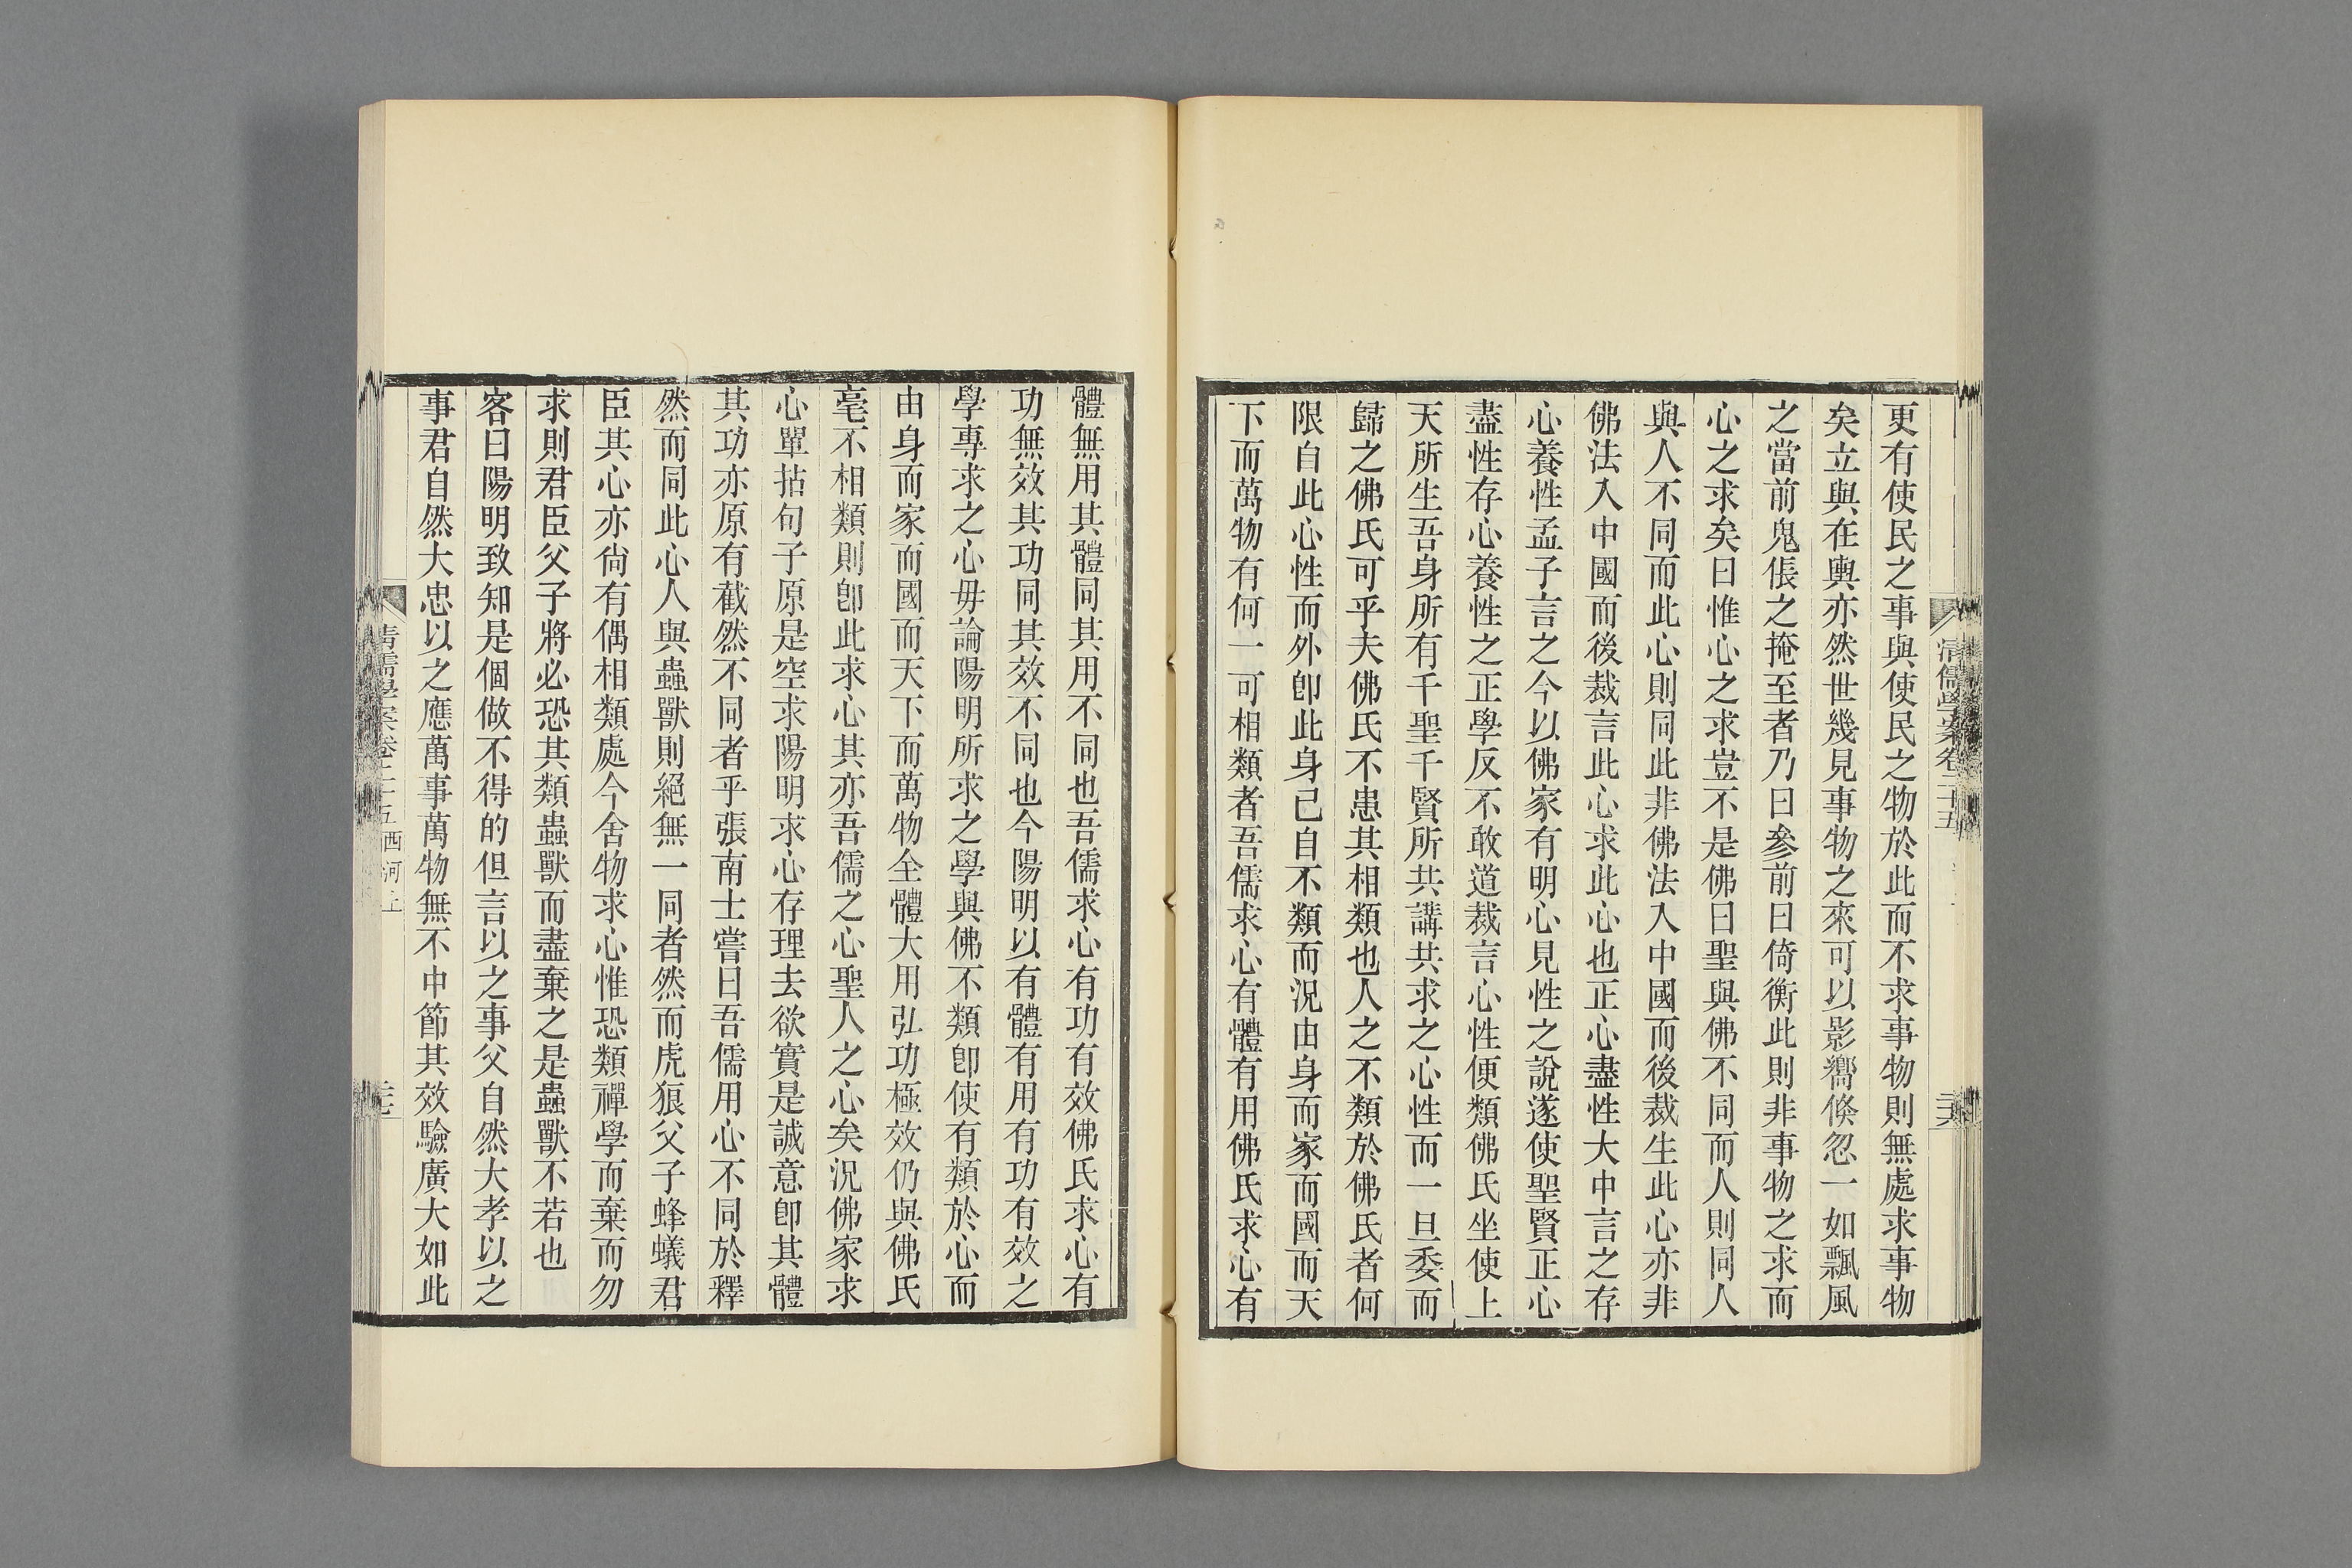 清儒學案卷二十五
更有使民之事與使民之物於此而不求事物則無處求事物
矣立與在輿亦然世幾見事物之來可以影嚮倐忽一如飄風
之當前鬼倀之掩至者乃曰參前曰倚衡此則非事物之求而
心之求矣曰惟心之求豈不是佛曰聖與佛不同而人則同人
與人不同而此心則同此非佛法入中國而後裁生此心亦非
佛法入中國而後裁言此心求此心也正心盡性大中言之存
心養性孟子言之今以佛家有明心見性之說遂使聖賢正心
盡性存心養性之正學反不敢道裁言心性便類佛氏坐使上
天所生吾身所有千聖千賢所共講共求之心性而一旦委而
歸之佛氏可乎夫佛氏不患其相類也人之不類於佛氏者何
限自此心性而外卽此身己自不類而況由身而家而國而天
下而萬物有何一可相類者吾儒求心有體有用佛氏求心有
體無用其體同其用不同也吾儒求心有功有效佛氏求心有
功無效其功同其效不同也今陽明以有體有用有功有效之
學專求之心毋論陽明所求之學與佛不類卽使有類於心而
由身而家而國而天下而萬物全體大用弘功極效仍與佛氏
毫不相類則卽此求心其亦吾儒之心聖人之心矣況佛家求
心單拈句子原是空求陽明求心存理去欲實是誠意卽其體
其功亦原有截然不同者乎張南士嘗曰吾儒用心不同於釋
然而同此心人與蟲獸則絕無一同者然而虎狼父子蜂蟻君
臣其心亦尙有偶相類處今舍物求心惟恐類禪學而棄而勿
求則君臣父子將必恐其類蟲獸而盡棄之是蟲獸不若也
客曰陽明致知是個做不得的但言以之事父自然大孝以之
事君自然大忠以之應萬事萬物無不中節其效驗廣大如此
清儒學案卷二十五 西河上